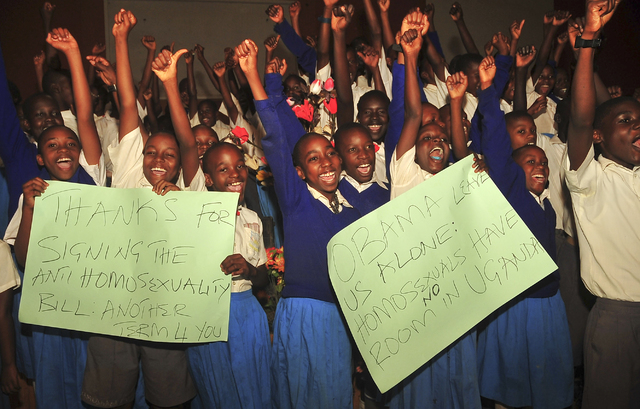 THANKS FOR
SIGNING THE
ANTI HOMOSEXUALITY
BILL. ANOTHER
TERM 4 YOU
OBAMA LEAVE
US ALONE!
HOMOSEXUALS HAVE
NO
ROOM IN UGANDA